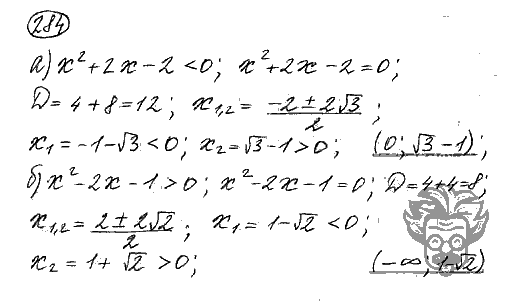 284
а) x² + 2x − 2 < 0; x² + 2x − 2 = 0;
D = 4 + 8 = 12; x₁,₂ = (−2 ± 2√3)/2;
x₁ = −1 − √3 < 0; x₂ = √3 − 1 > 0; (0; √3 − 1);
б) x² − 2x − 1 > 0; x² − 2x − 1 = 0; D = 4 + 4 = 8;
x₁,₂ = (2 ± 2√2)/2; x₁ = 1 − √2 < 0;
x₂ = 1 + √2 > 0; (−∞; 1 − √2)